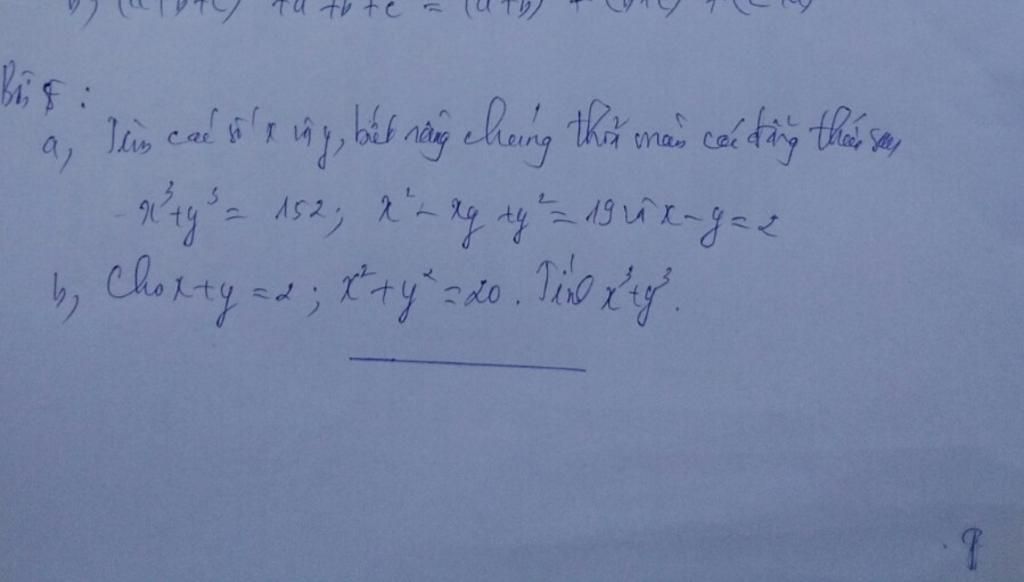 b, (a+b+c)² + a² + b² + c² = (a+b)² + (b+c)² + (c+a)²
Bài 8 :
a, Tìm các số x và y, biết rằng chúng thoả mãn các đẳng thức sau
x³+y³ = 152; x² - xy + y² = 19 và x-y=2
b, Cho x+y =2; x²+y² =20. Tính x³+y³.